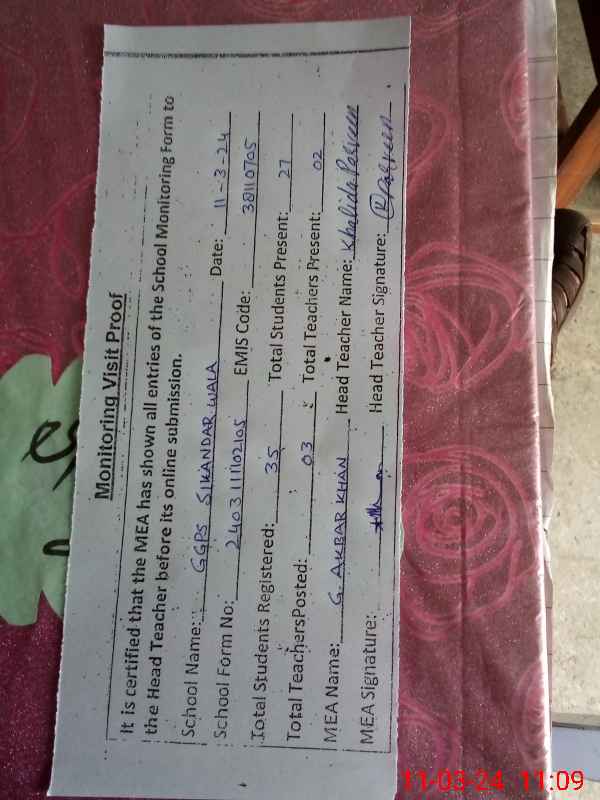 Monitoring Visit Proof
It is certified that the MEA has shown all entries of the School Monitoring Form to
the Head Teacher before its online submission.
School Name: GGPS SIKANDAR WALA Date: 11-3-24
School Form No: 2403111102105 EMIS Code: 38110705
Total Students Registered: 35 Total Students Present: 27
Total TeachersPosted: 03 Total Teachers Present: 02
MEA Name: G. AKBAR KHAN Head Teacher Name: Khalida Parveen
MEA Signature: Head Teacher Signature:
11-03-24 11:09